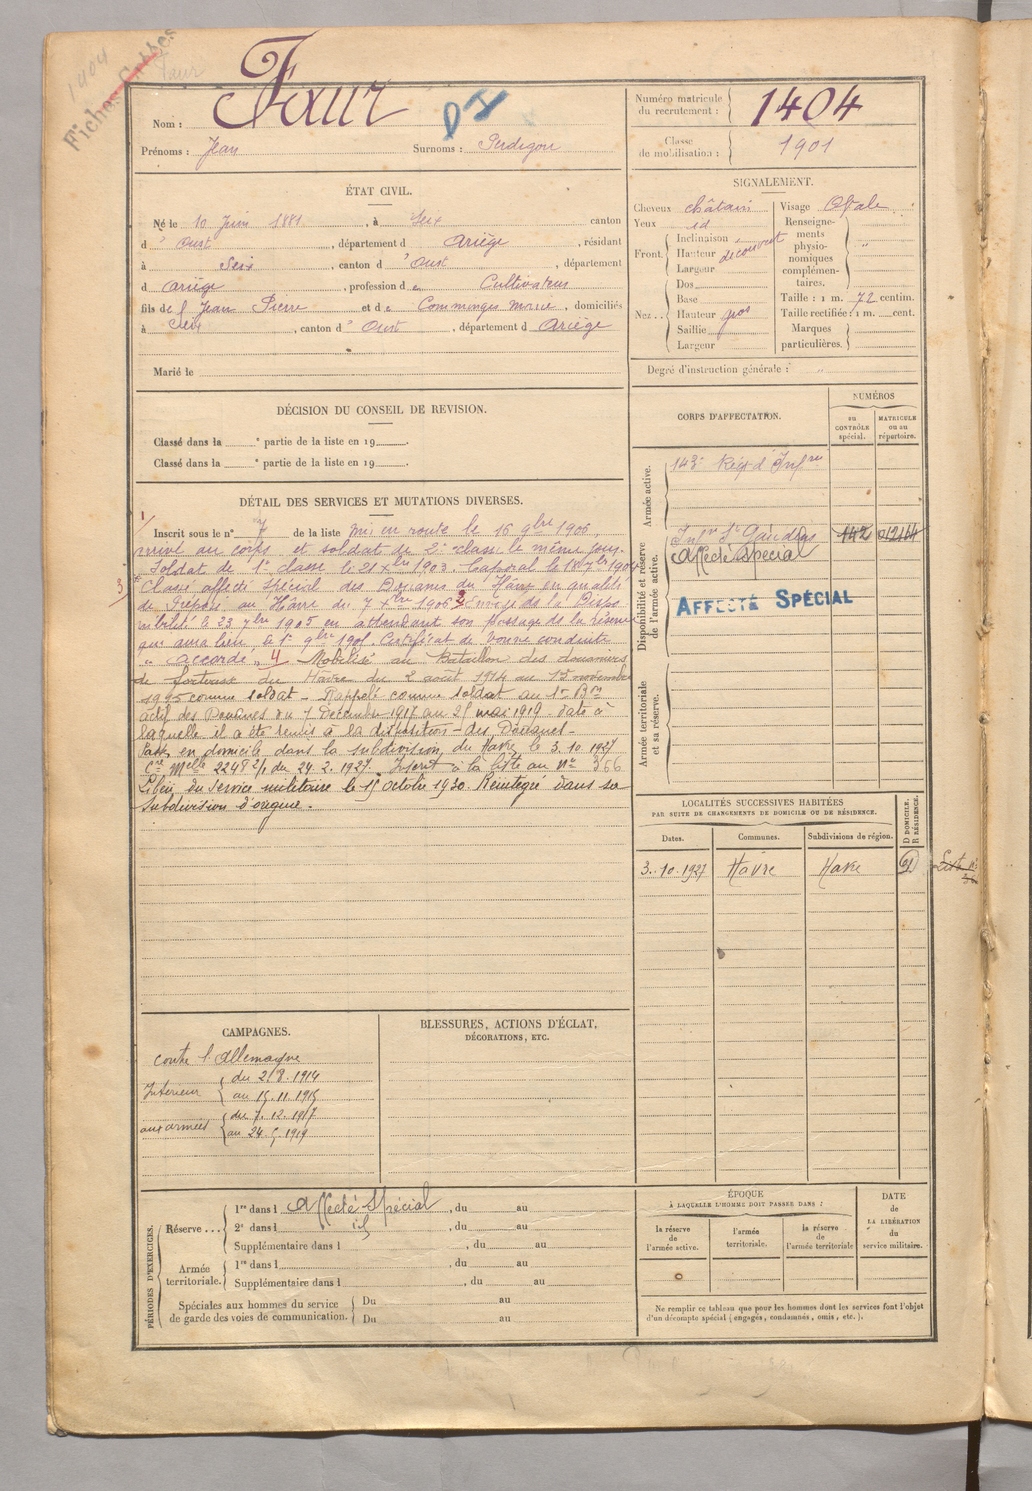 1404
Fiches
Faur
Nom : Faur
Prénoms : Jean Surnoms : Perdigou
Numéro matricule du recrutement : 1404
Classe de mobilisation : 1901
ÉTAT CIVIL.
Né le 10 Juin 1881, à Seix canton
d' Oust, département d Ariège, résidant
à Seix, canton d'Oust, département
d Ariège, profession de Cultivateur
fils de f Jean Pierre et de Comminges Marie, domiciliés
à Seix, canton d'Oust, département d Ariège
Marié le
SIGNALEMENT.
Cheveux châtain
Yeux id
Front. Inclinaison
Hauteur découvert
Largeur
Nez... Dos
Base
Hauteur gros
Saillie
Largeur
Visage Ovale
Renseignements physionomiques complémentaires.
Taille : 1 m. 72 centim.
Taille rectifiée : 1 m. cent.
Marques particulières.
Degré d'instruction générale : "
DÉCISION DU CONSEIL DE REVISION.
Classé dans la e partie de la liste en 19 .
Classé dans la e partie de la liste en 19 .
CORPS D'AFFECTATION.
NUMÉROS
au CONTRÔLE spécial.
MATRICULE ou au répertoire.
Armée active.
143e Régt d'Infrie
Disponibilité et réserve de l'armée active.
Infie St Gaudens 142
Affecté Spécial
AFFECTÉ SPÉCIAL
Armée territoriale et sa réserve.
DÉTAIL DES SERVICES ET MUTATIONS DIVERSES.
1/ Inscrit sous le n° 7 de la liste mis en route le 16 9bre 1902,
arrivé au corps et soldat de 2e classe le même jour.
Soldat de 1e classe le 21 Xbre 1903. Caporal le 18 7bre 1904
3/ Classé affecté spécial des Douanes du Hâvre en qualité
de Préposé au Hâvre du 7 Xbre 1906 2 de la Dispo-
nibilité le 23 7bre 1905 en attendant son passage de la réserve
qui aura lieu le 1er 9bre 1905. Certificat de bonne conduite
" accordé " 4 Mobilisé au Bataillon des douaniers
de forteresse du Havre du 2 août 1914 au 15 novembre
1915 comme soldat - Rappelé comme soldat au 1er Bon
actif des Douanes du 7 Décembre 1917 au 25 mai 1919 date à
laquelle il a été remis à la disposition des Douanes -
Passé en domicile dans la subdivision du Havre le 3.10.1927
Cre Melle 2248 2/1 du 24.2.1927. Inscrit à la liste au No 366
Libéré du Service militaire le 15 octobre 1930. Réintégré dans sa
Subdivision d'origine.
LOCALITÉS SUCCESSIVES HABITÉES
PAR SUITE DE CHANGEMENTS DE DOMICILE OU DE RÉSIDENCE.
Dates. Communes. Subdivisions de région. D DOMICILE. R RÉSIDENCE.
3.10.1927 Hâvre Havre D
CAMPAGNES.
contre l'Allemagne
Intérieur du 2.8.1914
au 15.11.1915
aux armées du 7.12.1917
au 24.5.1919
BLESSURES, ACTIONS D'ÉCLAT,
DÉCORATIONS, ETC.
PÉRIODES D'EXERCICES.
Réserve ... 1re dans l Affecté Spécial, du au
2e dans l id, du au
Supplémentaire dans l , du au
Armée territoriale. 1re dans l , du au
Supplémentaire dans l , du au
Spéciales aux hommes du service de garde des voies de communication. Du au
Du au
ÉPOQUE
À LAQUELLE L'HOMME DOIT PASSER DANS :
la réserve de l'armée active.
l'armée territoriale.
la réserve de l'armée territoriale
DATE de LA LIBÉRATION du service militaire.
Ne remplir ce tableau que pour les hommes dont les services font l'objet
d'un décompte spécial (engagés, condamnés, omis, etc.).